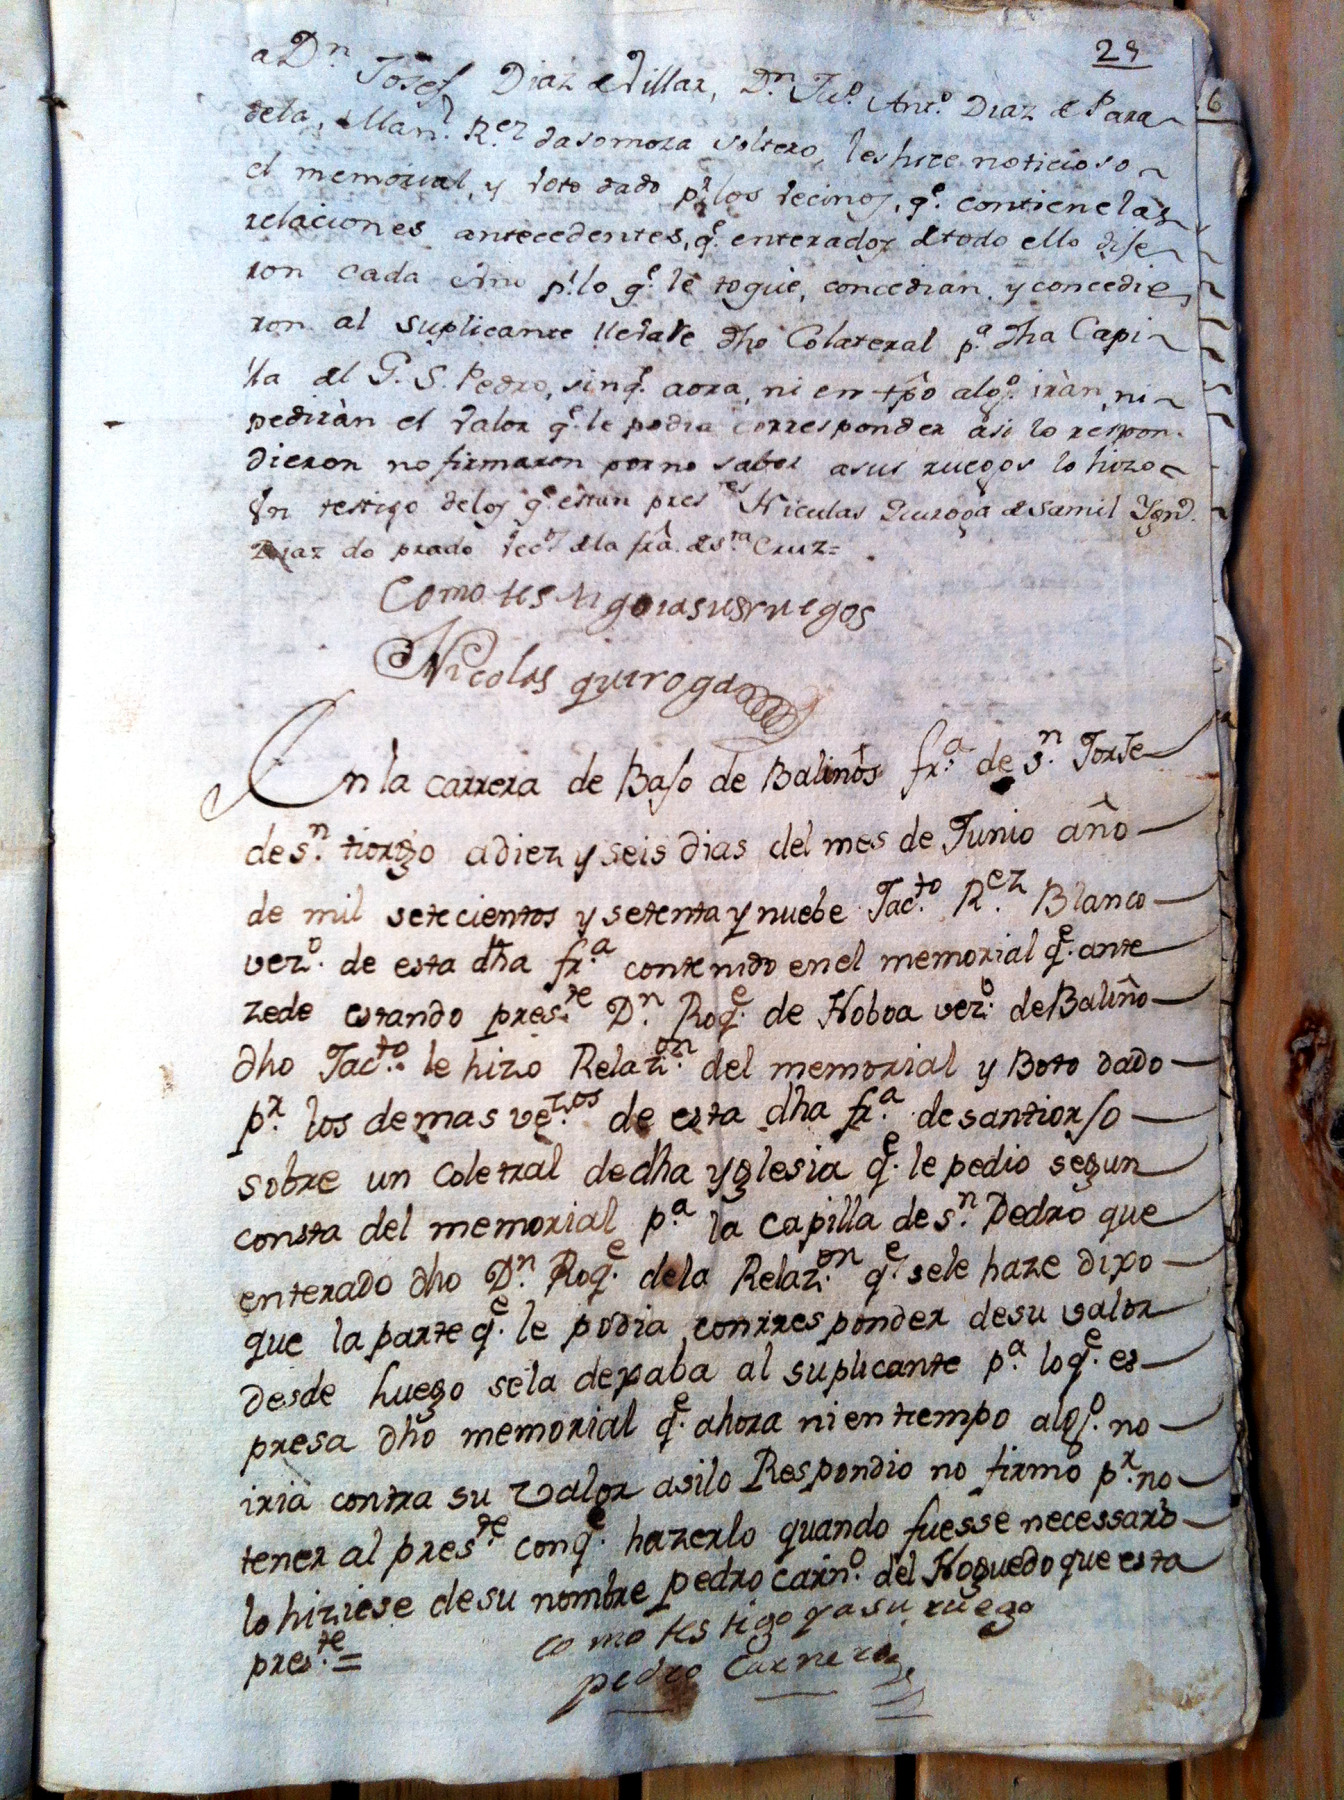 29
6
a Dn. Josef Diaz de Villar, Dn. Juo. Anto. Diaz de Para
dela, Manl. Rez dasomoza soltero, les hice noticioso
el memorial, y voto dado pr. los vecinos, qe. contiene las
relaciones antecedentes, qe. enterados de todo ello dije
ron cada uno pr. lo qe. le toque, concedian, y concedie
ron al suplicante llevase dho Colateral pa. dha Capi
lla del G. S. Pedro, sin qe. aora, ni en tpô algo. iràn, ni
pediràn el valor qe. le podia corresponder asi lo respon
dieron no firmaron por no saber a sus ruegos lo hizo
Un testigo delos qe. estan pres.tes Niculas Quiroga de Samil
Diaz do prado veco. dela frâ. de Sta. Cruz=
Como testigo i a sus ruegos
Nicolas quiroga
En la carrera de Bajo de Balinôs fra. de Sn. Jorje
de Sn. tiorgo a diez y seis dias del mes de Junio año
de mil setecientos y setenta y nuebe Jacto. Rez. Blanco
vezo. de esta dha fra. contenido en el memorial qe. ante
zede estando preste. Dn. Roqe. de Noboa vezo. de Baliño
dho Jacto. le hizo Relazon. del memorial y Boto dado
pr. los demas vezos de esta dha fra. de santiorjo
sobre un coletral de dha yglesia qe. le pedio segun
consta del memorial pa. la capilla de Sn. Pedro que
enterado dho Dn. Roqe. dela Relazon. qe. sele haze dixo
que la parte qe. le podia conrresponder de su valor
desde huego sela dexaba al suplicante pa. lo qe. es
presa dho memorial qe. ahora ni en tiempo algo. no
iria contra su valor asilo Respondio no firmo pr. no
tener al preste. con qe. hazerlo quando fuesse necessario
lo hiziese de su nombre pedro carno. del Noguedo que esta
preste. =
como testigo y a su ruego
pedro Carnero